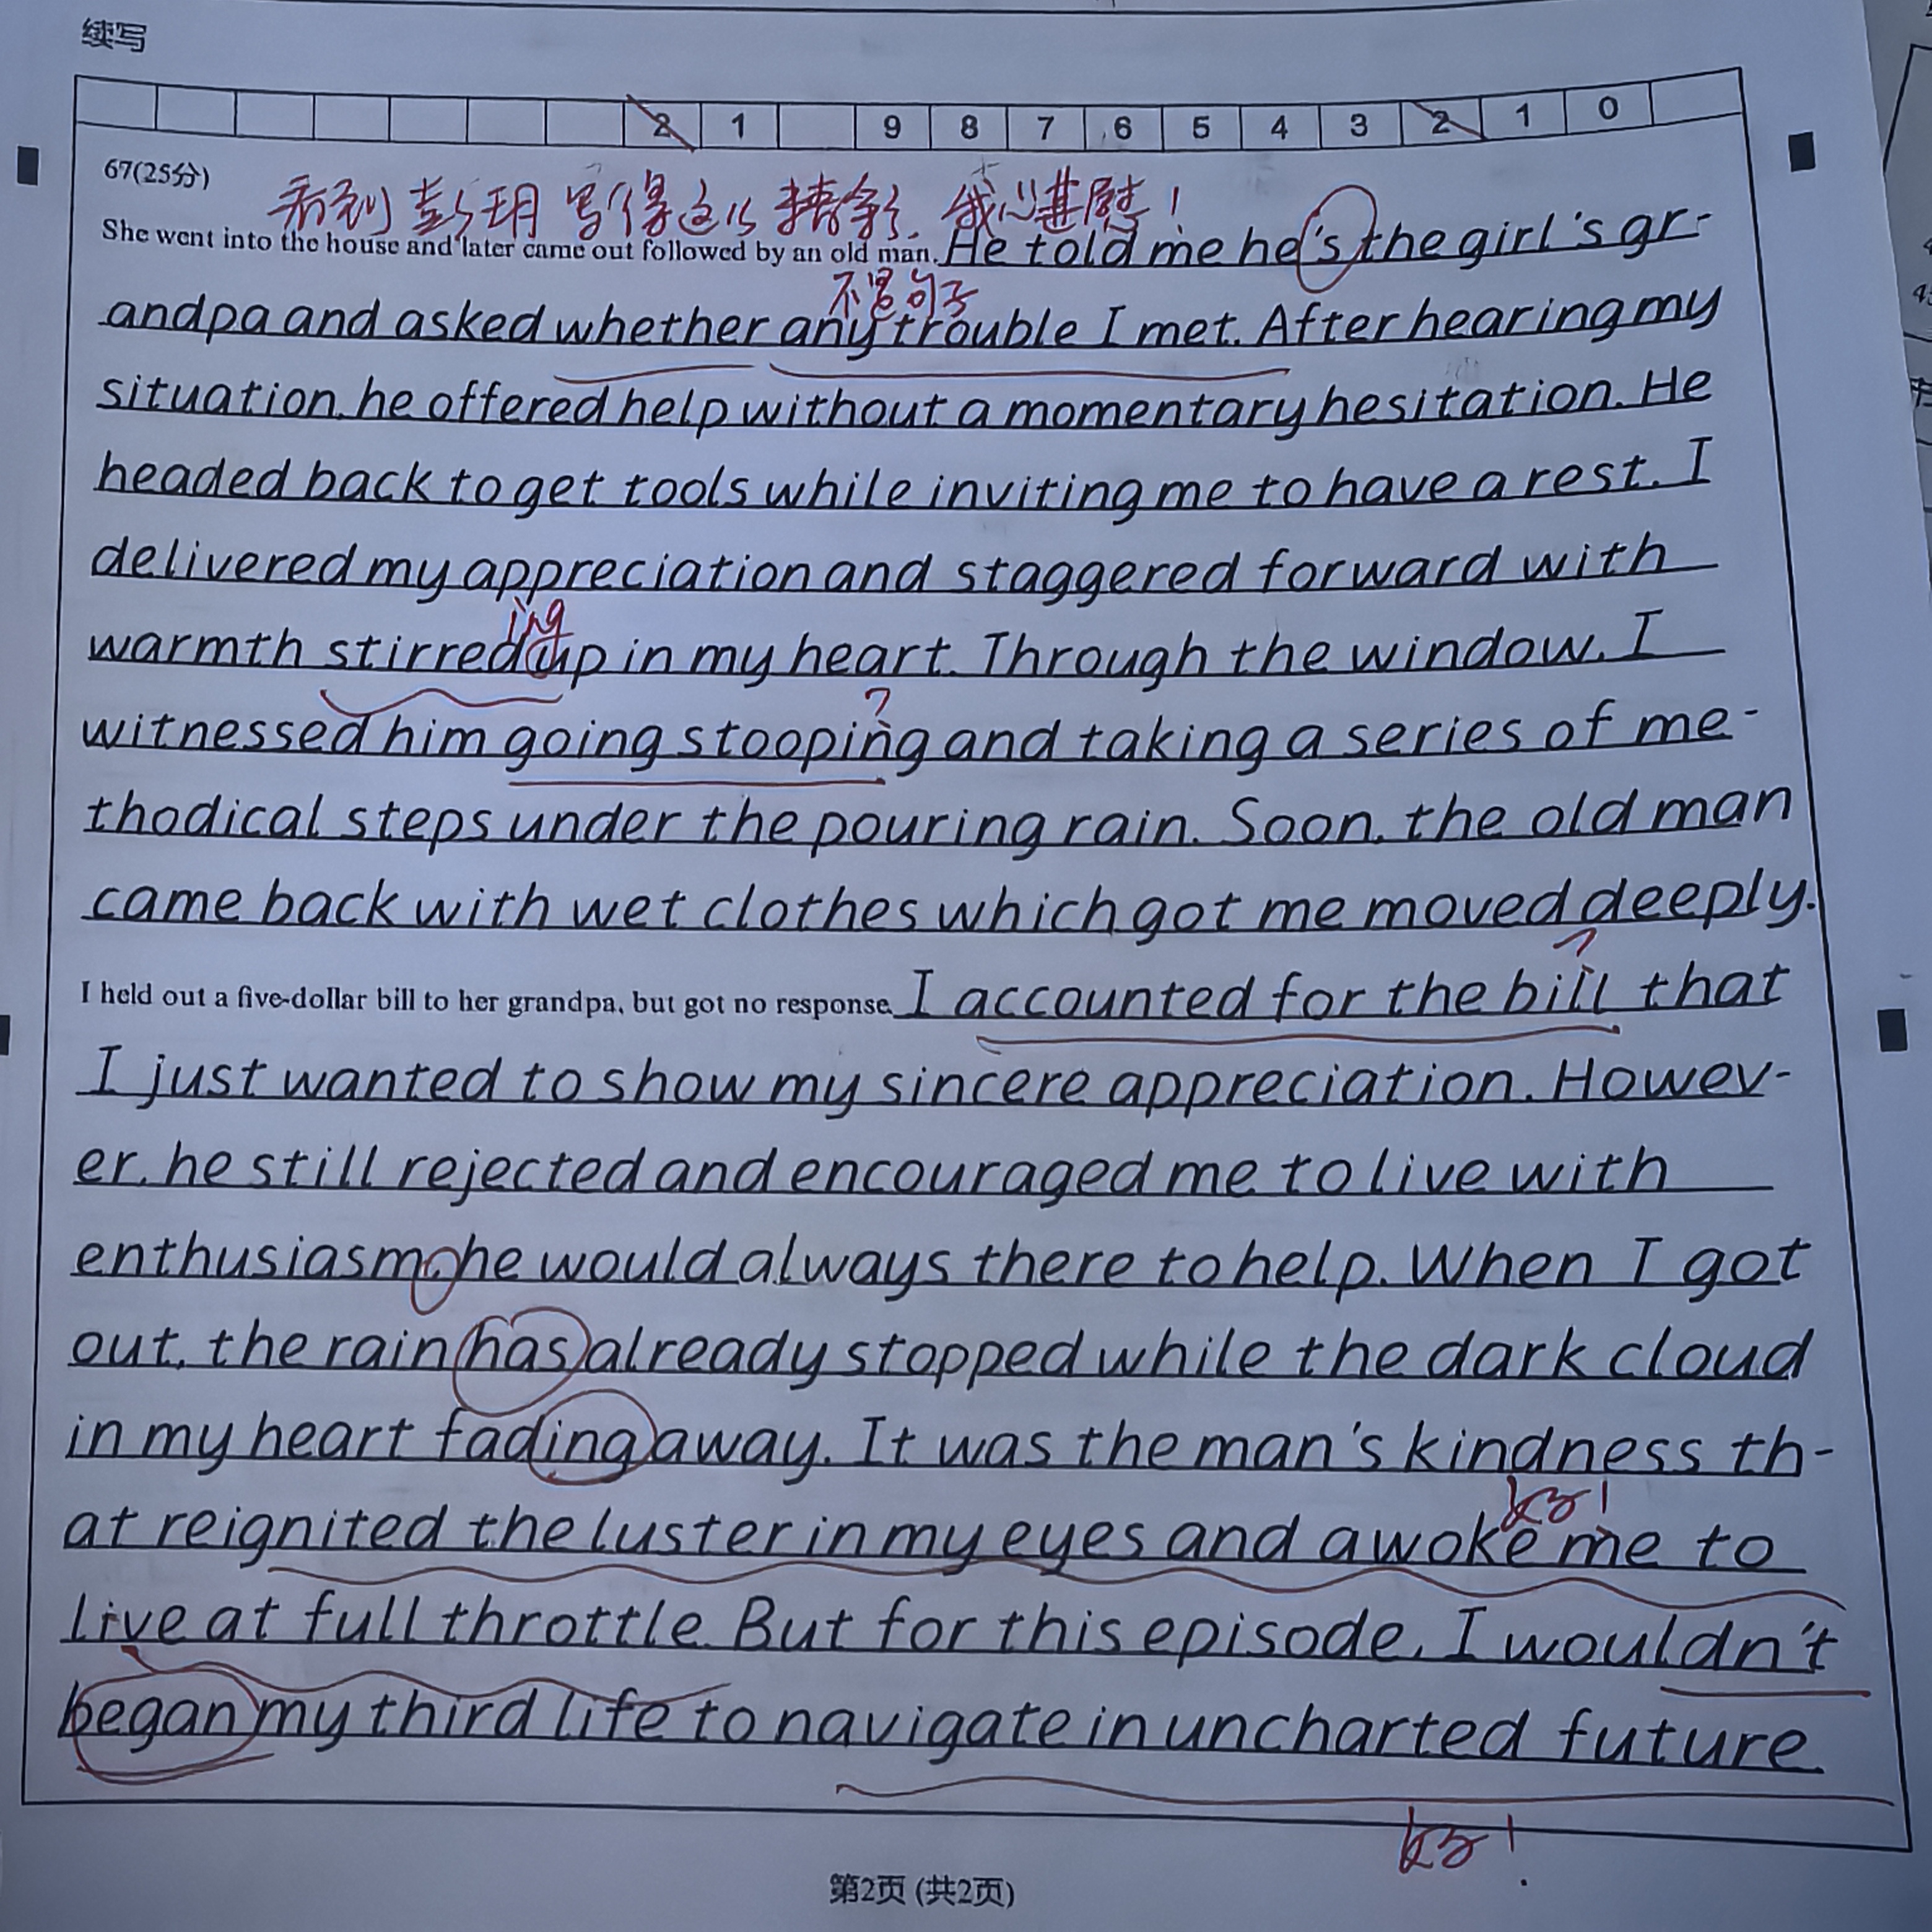 续写
2 1 9 8 7 6 5 4 3 2 1 0
67(25分)
看到彭玥写得这么精彩，我心甚慰！
She went into the house and later came out followed by an old man. He told me he's the girl's gr-
不是句子
andpa and asked whether any trouble I met. After hearing my
situation, he offered help without a momentary hesitation. He
headed back to get tools while inviting me to have a rest. I
delivered my appreciation and staggered forward with
ing
warmth stirred up in my heart. Through the window, I
?
witnessed him going stooping and taking a series of me-
thodical steps under the pouring rain. Soon, the old man
came back with wet clothes which got me moved deeply.
?
I held out a five-dollar bill to her grandpa, but got no response. I accounted for the bill that
I just wanted to show my sincere appreciation. Howev-
er, he still rejected and encouraged me to live with
enthusiasm, he would always there to help. When I got
out, the rain has already stopped while the dark cloud
in my heart fading away. It was the man's kindness th-
好！
at reignited the luster in my eyes and awoke me to
live at full throttle. But for this episode, I wouldn't
began my third life to navigate in uncharted future.
好！
第2页 (共2页)